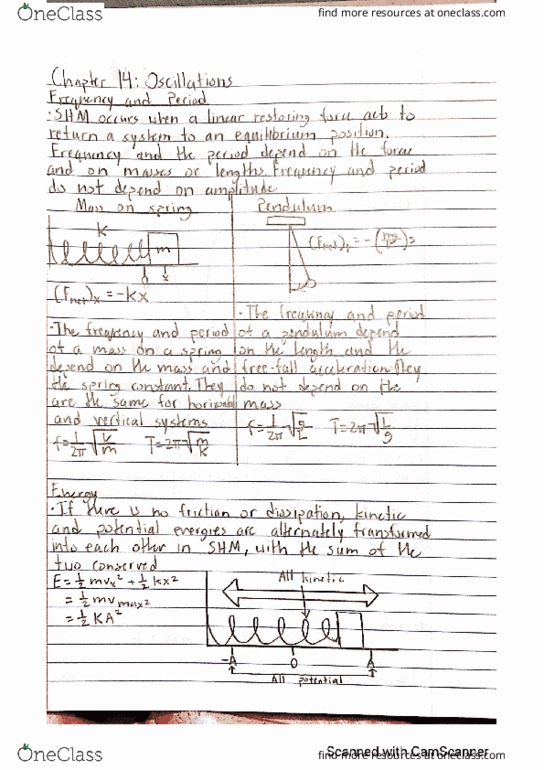 OneClass
find more resources at oneclass.com
Chapter 14: Oscillations
Frequency and Period
·SHM occurs when a linear restoring force acts to
return a system to an equilibrium position.
Frequency and the period depend on the force
and on masses or lengths. Frequency and period
do not depend on amplitude
Mass on spring
K
m
0 x
(Fnet)x = -kx
·The frequency and period
of a mass on a spring
depend on the mass and
the spring constant. They
are the same for horizontal
and vertical systems
f = 1/2π √k/m T = 2π √m/k
Pendulum
(Fnet)t = -(mg/L)s
·The frequency and period
of a pendulum depend
on the length and the
free-fall acceleration. They
do not depend on the
mass
f = 1/2π √g/L T = 2π √L/g
Energy
·If there is no friction or dissipation, kinetic
and potential energies are alternately transformed
into each other in SHM, with the sum of the
two conserved
E = ½ mvx² + ½ kx²
= ½ mv max²
= ½ KA²
All kinetic
-A 0 A
All potential
Scanned with CamScanner
OneClass
find more resources at oneclass.com